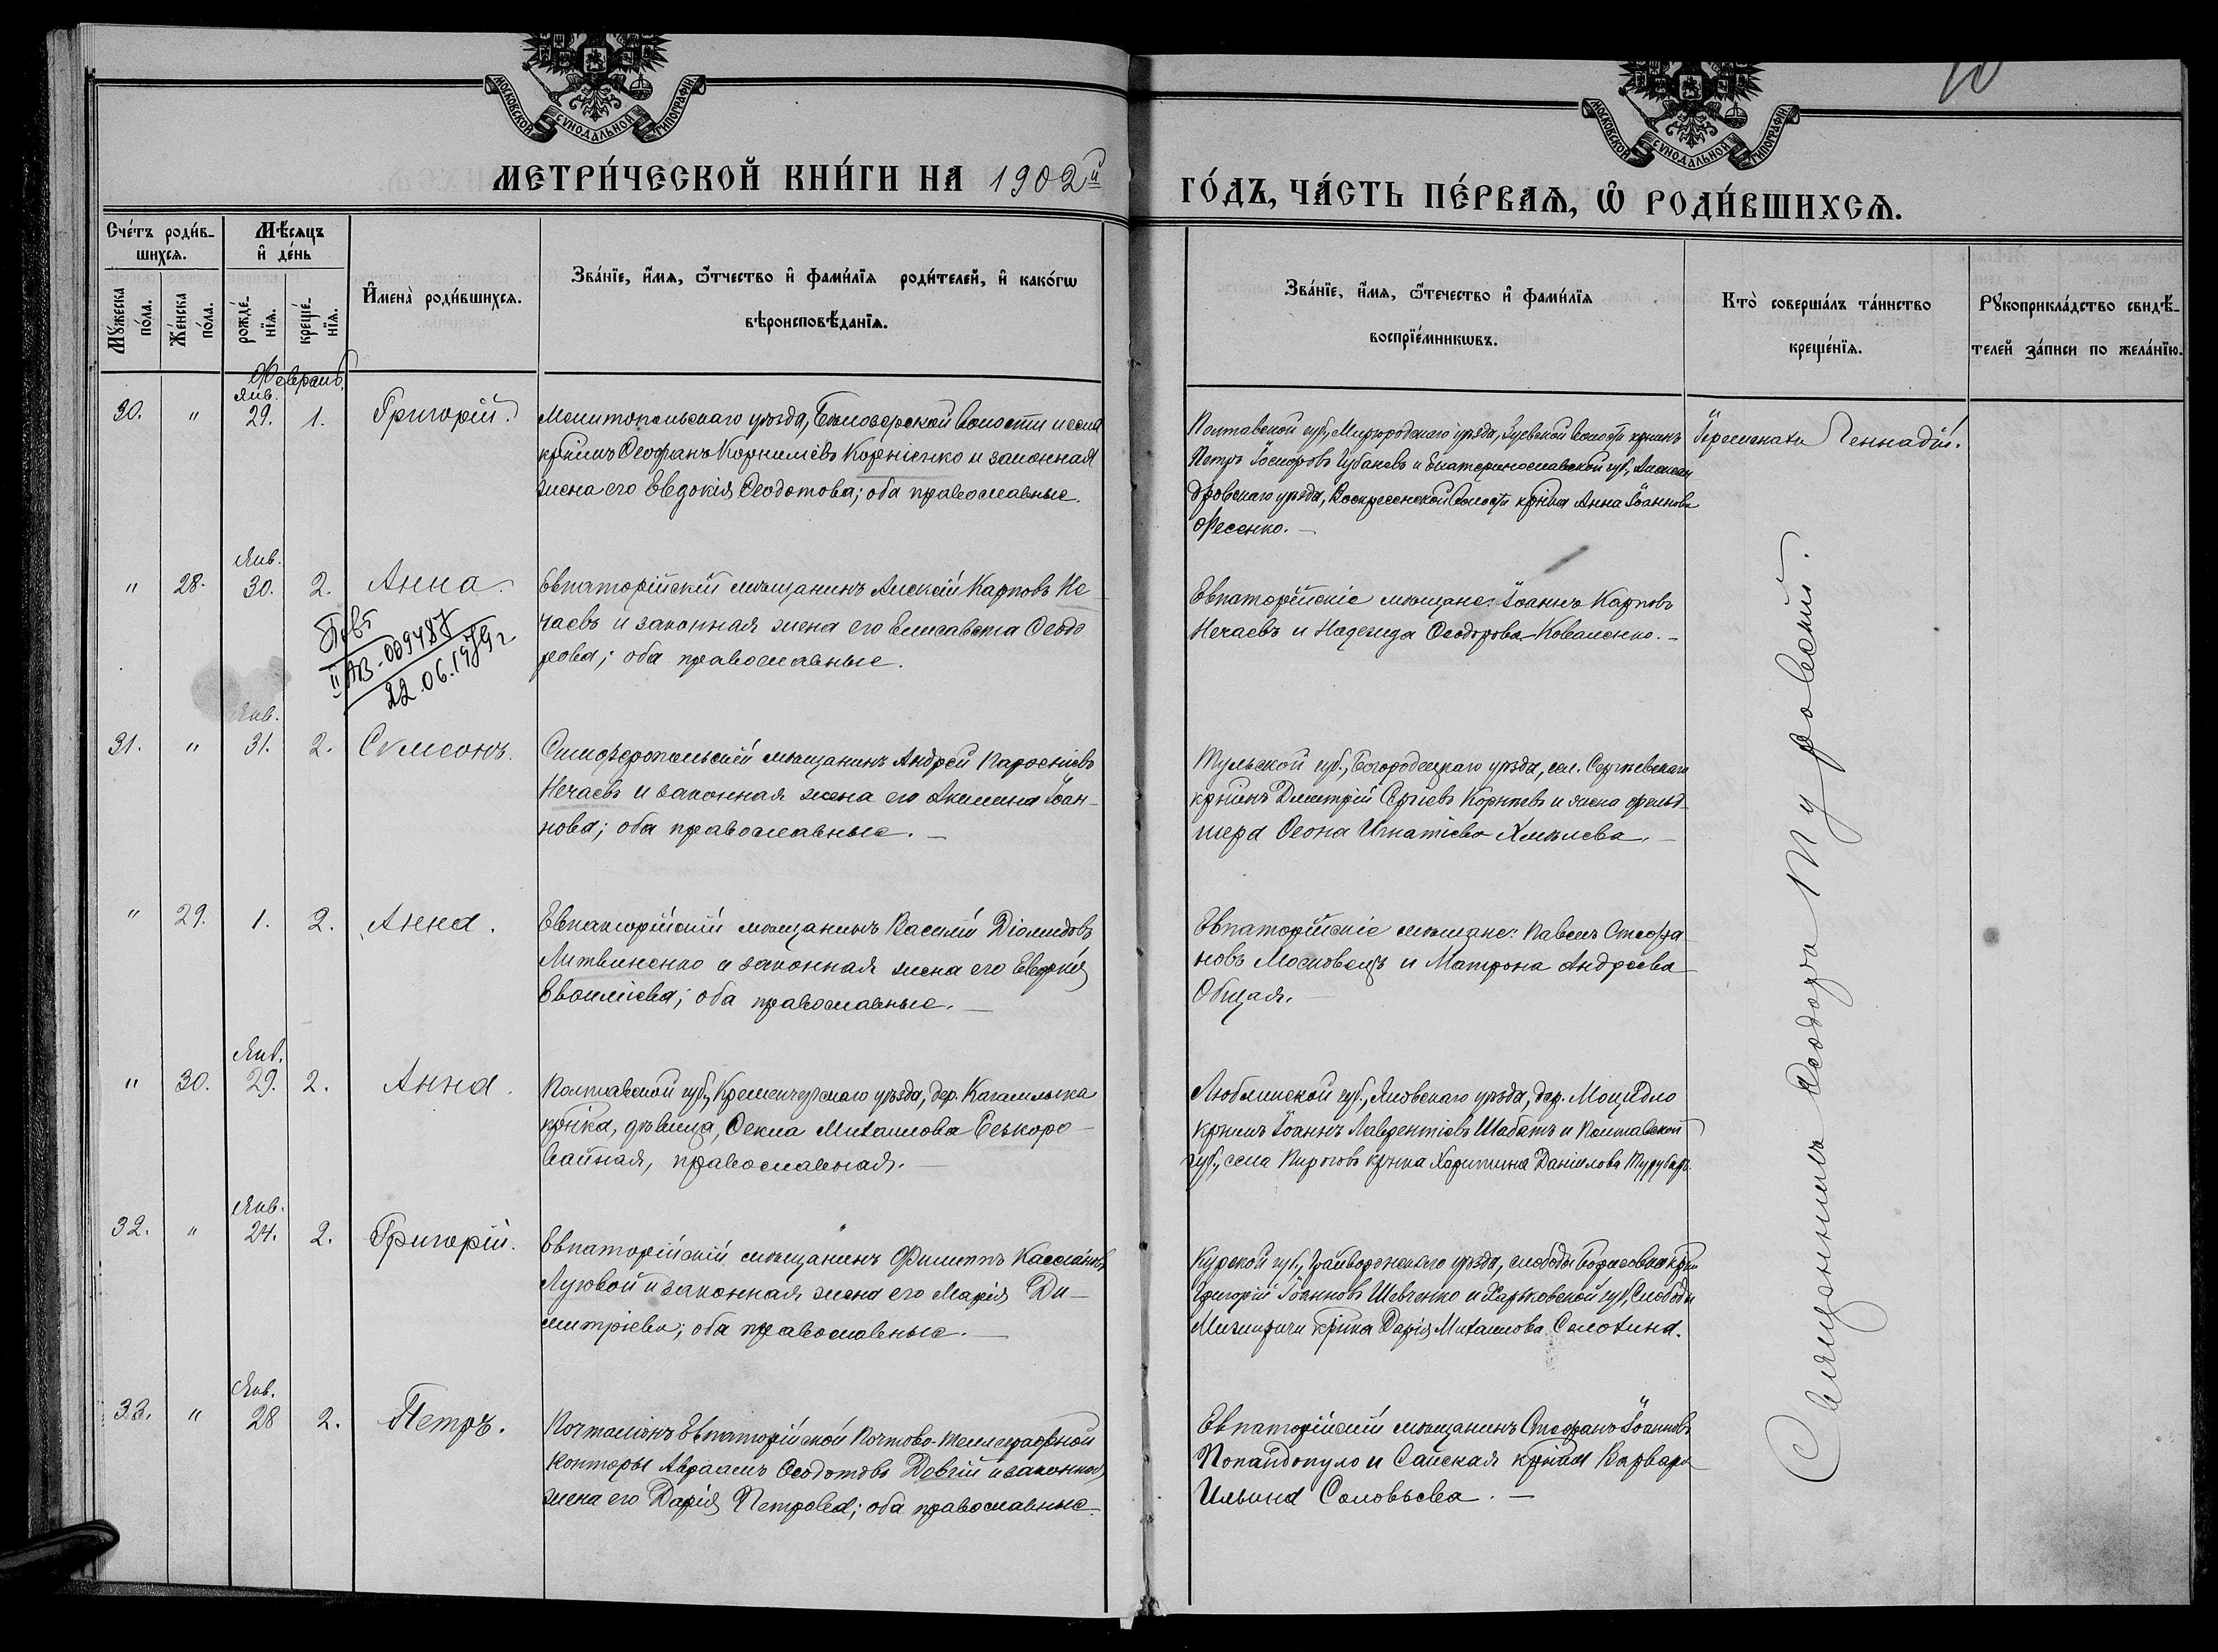 10
МОСКОВСКОЙ СѴНОДАЛЬНОЙ ТИПОГРАФІИ.
МОСКОВСКОЙ СѴНОДАЛЬНОЙ ТИПОГРАФІИ.
МЕТРИ́ЧЕСКОЙ КНИ́ГИ НА 1902й
ГО́ДЪ, ЧА́СТЬ ПЕ́РВАѦ, Ѡ҃ РОДИ́ВШИХСѦ.
Сче́тъ роди́в-
шихсѧ.
Мꙋ́жеска
по́ла.
Же́нска
по́ла.
Мѣ́сѧцъ
и҆ де́нь
рожде́-
нїѧ.
креще́-
нїѧ.
И҆мена̀ роди́вшихсѧ.
Зва́нїе, и҆́мѧ, ѻ҆́тчество и҆ фами́лїѧ роди́телей, и҆ како́гѡ
вѣроисповѣ́данїѧ.
Зва́нїе, и҆́мѧ, ѻ҆́течество и҆ фами́лїѧ
воспрїе́мникѡвъ.
Кто̀ соверша́лъ та́инство
креще́нїѧ.
Рꙋкоприкла́дство свидѣ́-
телей за́писи по жела́нїю.
Февраль.
Янв.
30. " 29. 1. Григорій.
Мелитопольскаго уѣзда, Бѣлозерской волости и села
кр-нинъ Ѳеофанъ Корниліевъ Корніенко и законная
жена его Евдокія Ѳеодотова; оба православные.
Полтавской губ., Миргородскаго уѣзда, Зуевской волости кр-нинъ
Петръ Іосифовъ Губановъ и Екатеринославской губ., Алексан
дровскаго уѣзда, Воскресенской волости кр-нка Анна Іоаннова
Фесенко. —
Іеромонахъ Геннадій.
Янв.
" 28. 30. 2. Анна.
Евпаторійскій мѣщанинъ Алексѣй Карповъ Не
чаевъ и законная жена его Елисавета Ѳеодо
рова; оба православные.
Евпаторійскіе мѣщане: Іоаннъ Карповъ
Нечаевъ и Надежда Ѳеодорова Коваленко. —
II АВ-009487
22.06.1979г
Янв.
31. " 31. 2. Сѵмеонъ.
Симферопольскій мѣщанинъ Андрей Парѳеніевъ
Нечаевъ и законная жена его Акилина Іоан-
нова; оба православные. —
Тульской губ., Богородецкаго уѣзда, сел. Сергіевскаго
кр-нинъ Дмитрій Сергіевъ Корнѣевъ и жена фельд-
шера Ѳеона Игнатіева Хмѣлева. —
" 29. 1. 2. Анна.
Евпаторійскій мѣщанинъ Василій Діомидовъ
Литвиненко и законная жена его Евдокія
Евѳиміева; оба православные. —
Евпаторійскіе мѣщане: Павелъ Стефа
новъ Московецъ и Матрона Андреева
Общая. —
Янв.
" 30. 29. 2. Анна.
Полтавской губ., Кременчугскаго уѣзда, дер. Кагамлыка
кр-нка, дѣвица, Ѳекла Михаилова Безкоро-
вайная, православная. —
Люблинской губ., Яновскаго уѣзда, дер.
кр-нинъ Іоаннъ Лаврентіевъ Шабатъ и Полтавской
губ., села Пироговъ кр-нка Харитина Даніилова
Янв.
32. " 24. 2. Григорій.
Евпаторійскій мѣщанинъ Филиппъ Кассіановъ
Луговой и законная жена его Марія Ди-
митріева; оба православные. —
Курской губ., Грайворонскаго уѣзда, слободы Борисовки кр-нинъ
Григорій Іоанновъ Шевченко и Харьковской губ., слободы
кр-нка Дарія Михаилова Солохина.
Янв.
33. " 28 2. Петръ.
Почталіонъ Евпаторійской Почтово-телеграфной
конторы Авраамъ Ѳеодотовъ Довгій и законная
жена его Дарія Петрова; оба православные.
Евпаторійскій мѣщанинъ Стефанъ Іоанновъ
Попандопуло и Сакская кр-нка Варвара
Ильина Соловьева. —
Священникъ Ѳеодоръ Туровскій.